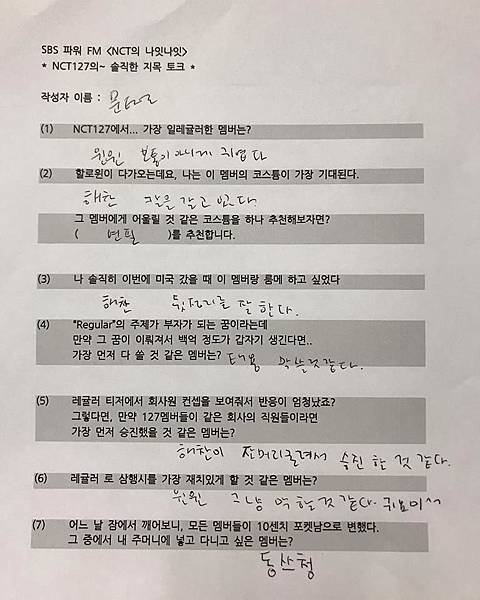 SBS 파워 FM <NCT의 나잇나잇>
* NCT127의~ 솔직한 지목 토크 *
작성자 이름 : 문태일
(1) NCT127에서... 가장 일레귤러한 멤버는?
윈윈 보통이 아니게 귀엽다
(2) 할로윈이 다가오는데요, 나는 이 멤버의 코스튬이 가장 기대된다.
해찬 칼을 갈고 있다
그 멤버에게 어울릴 것 같은 코스튬을 하나 추천해보자면?
( 연필 )를 추천합니다.
(3) 나 솔직히 이번에 미국 갔을 때 이 멤버랑 룸메 하고 싶었다
해찬 뒷정리를 잘 한다.
(4) "Regular"의 주제가 부자가 되는 꿈이라는데
만약 그 꿈이 이뤄져서 백억 정도가 갑자기 생긴다면..
가장 먼저 다 쓸 것 같은 멤버는? 태용 막 쓸것 같다.
(5) 레귤러 티저에서 회사원 컨셉을 보여줘서 반응이 엄청났죠?
그렇다면, 만약 127멤버들이 같은 회사의 직원들이라면
가장 먼저 승진했을 것 같은 멤버는?
해찬이 잔머리굴려서 승진 할 것 같다.
(6) 레귤러 로 삼행시를 가장 재치있게 할 것 같은 멤버는?
윈윈 그냥 막 할것 같다. 귀요미^^
(7) 어느 날 잠에서 깨어보니, 모든 멤버들이 10센치 포켓남으로 변했다.
그 중에서 내 주머니에 넣고 다니고 싶은 멤버는?
동쓰청